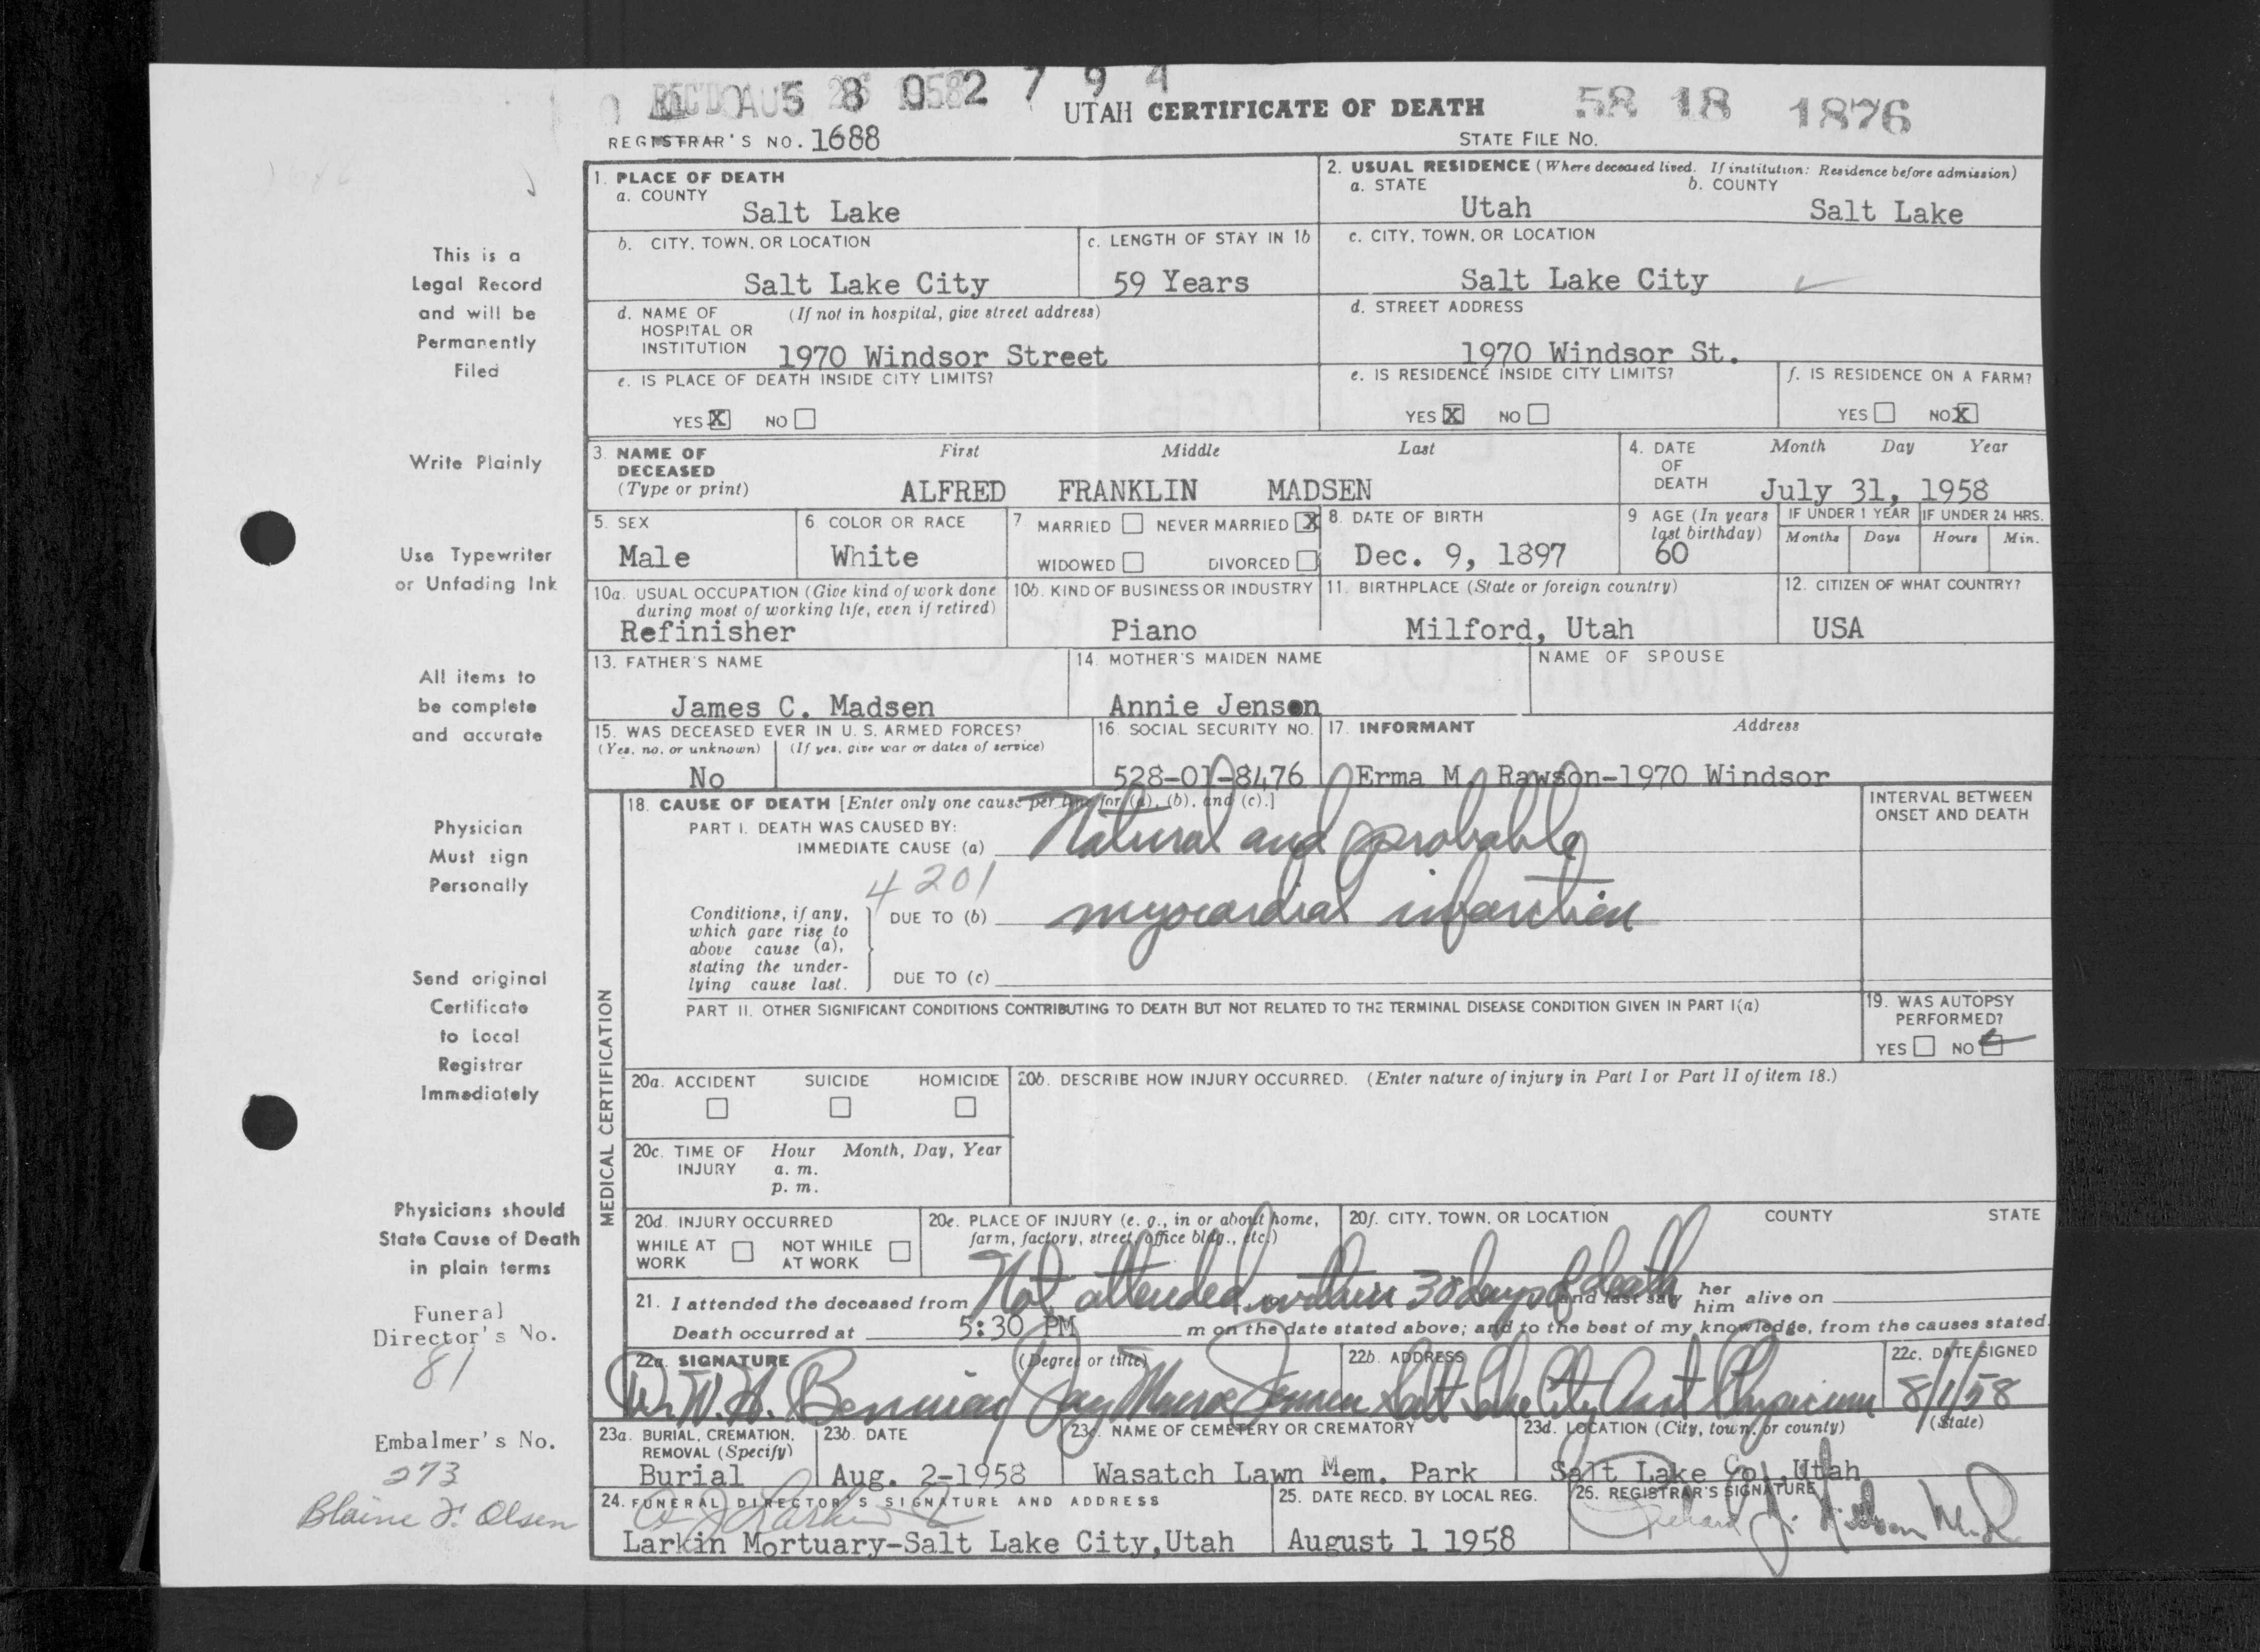 REC'D AUG 26 1958
58 02794
UTAH CERTIFICATE OF DEATH
58 18 1876
REGISTRAR'S NO. 1688
STATE FILE NO.
This is a
Legal Record
and will be
Permanently
Filed
Write Plainly
Use Typewriter
or Unfading Ink
All items to
be complete
and accurate
Physician
Must sign
Personally
Send original
Certificate
to Local
Registrar
Immediately
Physicians should
State Cause of Death
in plain terms
Funeral
Director's No.
81
Embalmer's No.
273
Blaine F. Olsen
1. PLACE OF DEATH
a. COUNTY
Salt Lake
2. USUAL RESIDENCE (Where deceased lived. If institution: Residence before admission)
a. STATE
b. COUNTY
Utah
Salt Lake
b. CITY, TOWN, OR LOCATION
Salt Lake City
c. LENGTH OF STAY IN 1b
59 Years
c. CITY, TOWN, OR LOCATION
Salt Lake City
d. NAME OF (If not in hospital, give street address)
HOSPITAL OR
INSTITUTION 1970 Windsor Street
d. STREET ADDRESS
1970 Windsor St.
e. IS PLACE OF DEATH INSIDE CITY LIMITS?
YES X NO
e. IS RESIDENCE INSIDE CITY LIMITS?
YES X NO
f. IS RESIDENCE ON A FARM?
YES NO X
3. NAME OF
DECEASED
(Type or print)
First Middle Last
ALFRED FRANKLIN MADSEN
4. DATE
OF
DEATH
Month Day Year
July 31, 1958
5. SEX
Male
6. COLOR OR RACE
White
7 MARRIED NEVER MARRIED X
WIDOWED DIVORCED
8. DATE OF BIRTH
Dec. 9, 1897
9 AGE (In years
last birthday)
60
IF UNDER 1 YEAR
Months Days
IF UNDER 24 HRS.
Hours Min.
10a. USUAL OCCUPATION (Give kind of work done
during most of working life, even if retired)
Refinisher
10b. KIND OF BUSINESS OR INDUSTRY
Piano
11. BIRTHPLACE (State or foreign country)
Milford, Utah
12. CITIZEN OF WHAT COUNTRY?
USA
13. FATHER'S NAME
James C. Madsen
14. MOTHER'S MAIDEN NAME
Annie Jensen
NAME OF SPOUSE
15. WAS DECEASED EVER IN U. S. ARMED FORCES?
(Yes, no, or unknown) (If yes, give war or dates of service)
No
16. SOCIAL SECURITY NO.
528-01-8476
17. INFORMANT Address
Erma M. Rawson-1970 Windsor
MEDICAL CERTIFICATION
18. CAUSE OF DEATH [Enter only one cause per line for (a), (b), and (c).]
INTERVAL BETWEEN
ONSET AND DEATH
PART I. DEATH WAS CAUSED BY:
IMMEDIATE CAUSE (a) Natural and probable
4201
Conditions, if any,
which gave rise to
above cause (a),
stating the under-
lying cause last.
DUE TO (b) myocardial infarction
DUE TO (c)
PART II. OTHER SIGNIFICANT CONDITIONS CONTRIBUTING TO DEATH BUT NOT RELATED TO THE TERMINAL DISEASE CONDITION GIVEN IN PART I(a)
19. WAS AUTOPSY
PERFORMED?
YES NO
20a. ACCIDENT SUICIDE HOMICIDE
20b. DESCRIBE HOW INJURY OCCURRED. (Enter nature of injury in Part I or Part II of item 18.)
20c. TIME OF Hour Month, Day, Year
INJURY a. m.
p. m.
20d. INJURY OCCURRED
WHILE AT NOT WHILE
WORK AT WORK
20e. PLACE OF INJURY (e. g., in or about home,
farm, factory, street, office bldg., etc.)
20f. CITY, TOWN, OR LOCATION COUNTY STATE
21. I attended the deceased from Not attended within 30 days of death and last saw her him alive on
Death occurred at 5:30 PM m on the date stated above; and to the best of my knowledge, from the causes stated.
22a. SIGNATURE (Degree or title)
22b. ADDRESS
22c. DATE SIGNED
Salt Lake City Asst Physician
8/1/58
23a. BURIAL, CREMATION,
REMOVAL (Specify)
Burial
23b. DATE
Aug. 2-1958
23c. NAME OF CEMETERY OR CREMATORY
Wasatch Lawn Mem. Park
23d. LOCATION (City, town, or county) (State)
Salt Lake Co., Utah
24. FUNERAL DIRECTOR'S SIGNATURE AND ADDRESS
Larkin Mortuary-Salt Lake City, Utah
25. DATE RECD. BY LOCAL REG.
August 1 1958
26. REGISTRAR'S SIGNATURE